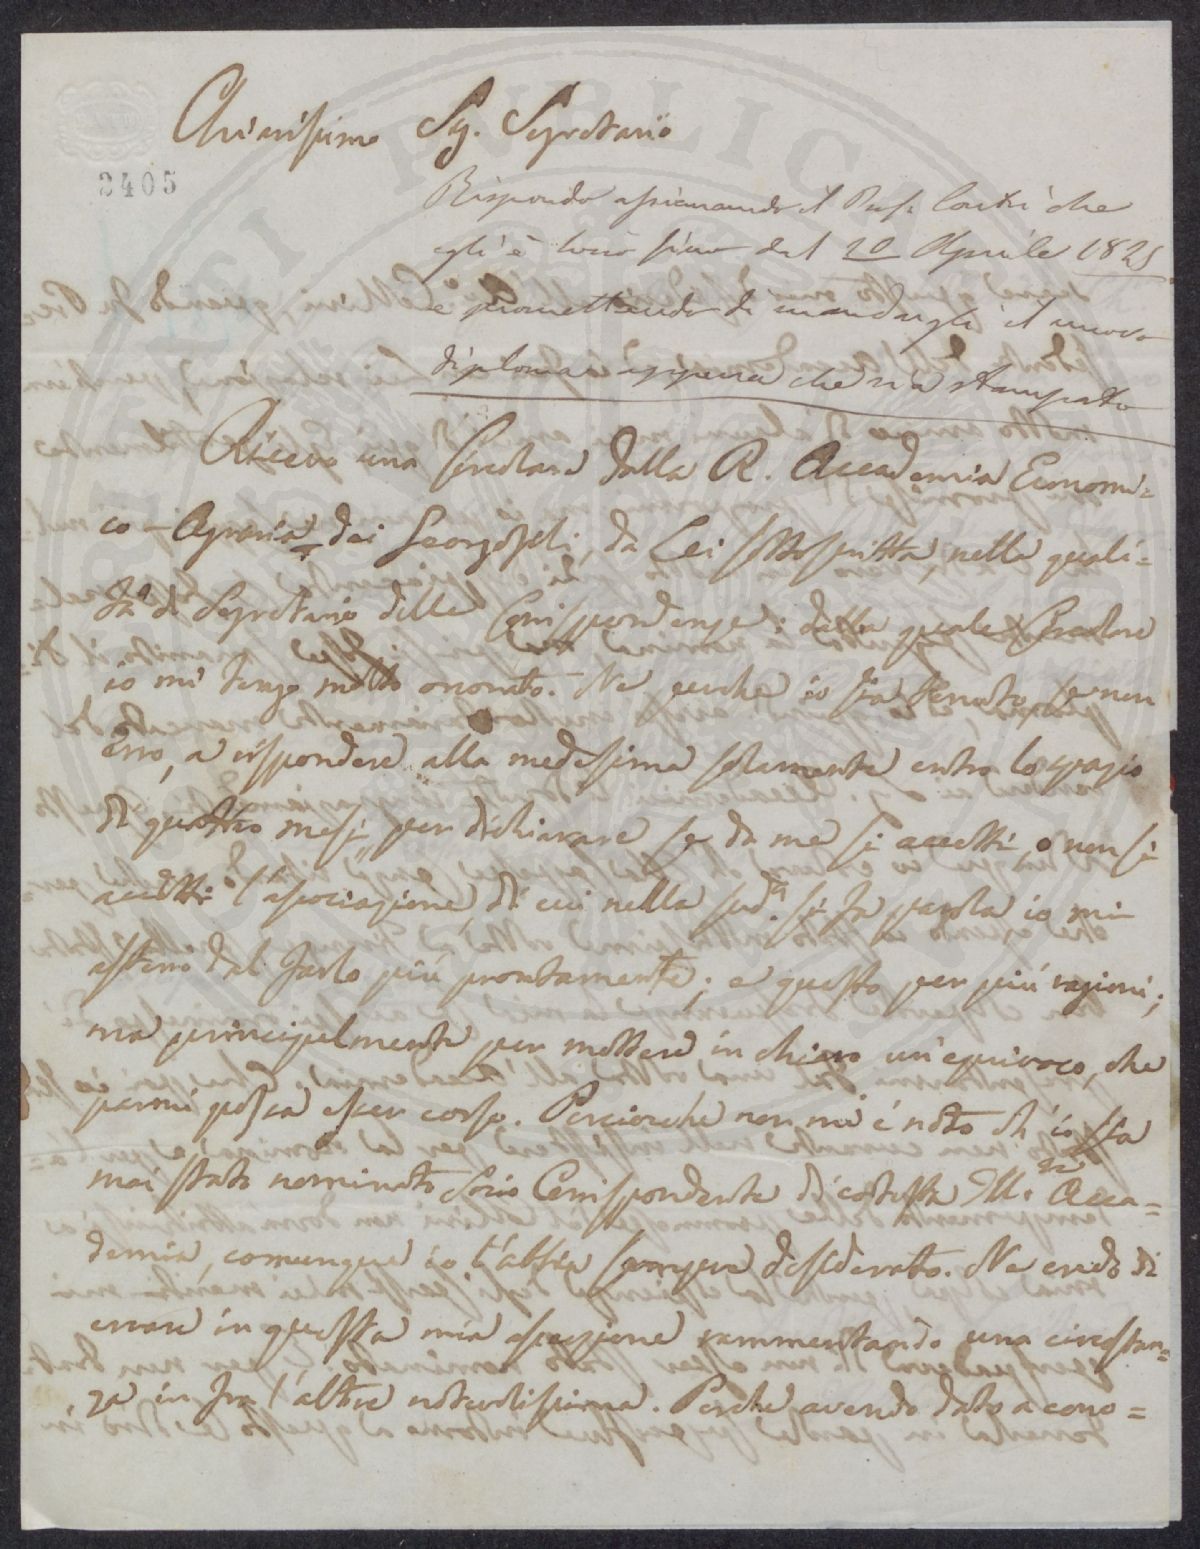 Chiarissimo Sig. Segretario
2405
Rispondo assicurando il Prof. Contri che
egli è socio sino dal 20 Aprile 1825
e promettendo di mandargli il nuovo
diploma appena che sia stampato
Ricevo una Circolare dalla R. Accademia Economi=
co-Agraria dei Georgofili, da Lei sottoscritta nella quali=
tà di Segretario delle Corrispondenze: della quale Circolare
io mi tengo molto onorato. Ne perche io sia tenuto, se non
erro, a rispondere alla medesima solamente entro lo spazio
di quattro mesi per dichiarare se da me si accetti, o non si
accetti l'associazione, di cui nella sud.ª si fa parola io mi
astterro dal farlo più prontamente; e questo per più ragioni;
ma principalmente per mettere in chiaro un'equivoco, che
parmi possa esser corso. Perciocche non mi è noto ch'io sia
mai stato nominato Socio Corrispondente di cotesta Ill. Acca=
demia, comunque io l'abbia sempre desiderato. Ne credo di
errare in questa mia asserzione rammentando una circostan=
za in fra l'altre notevolissima. Perche avendo dato a cono=